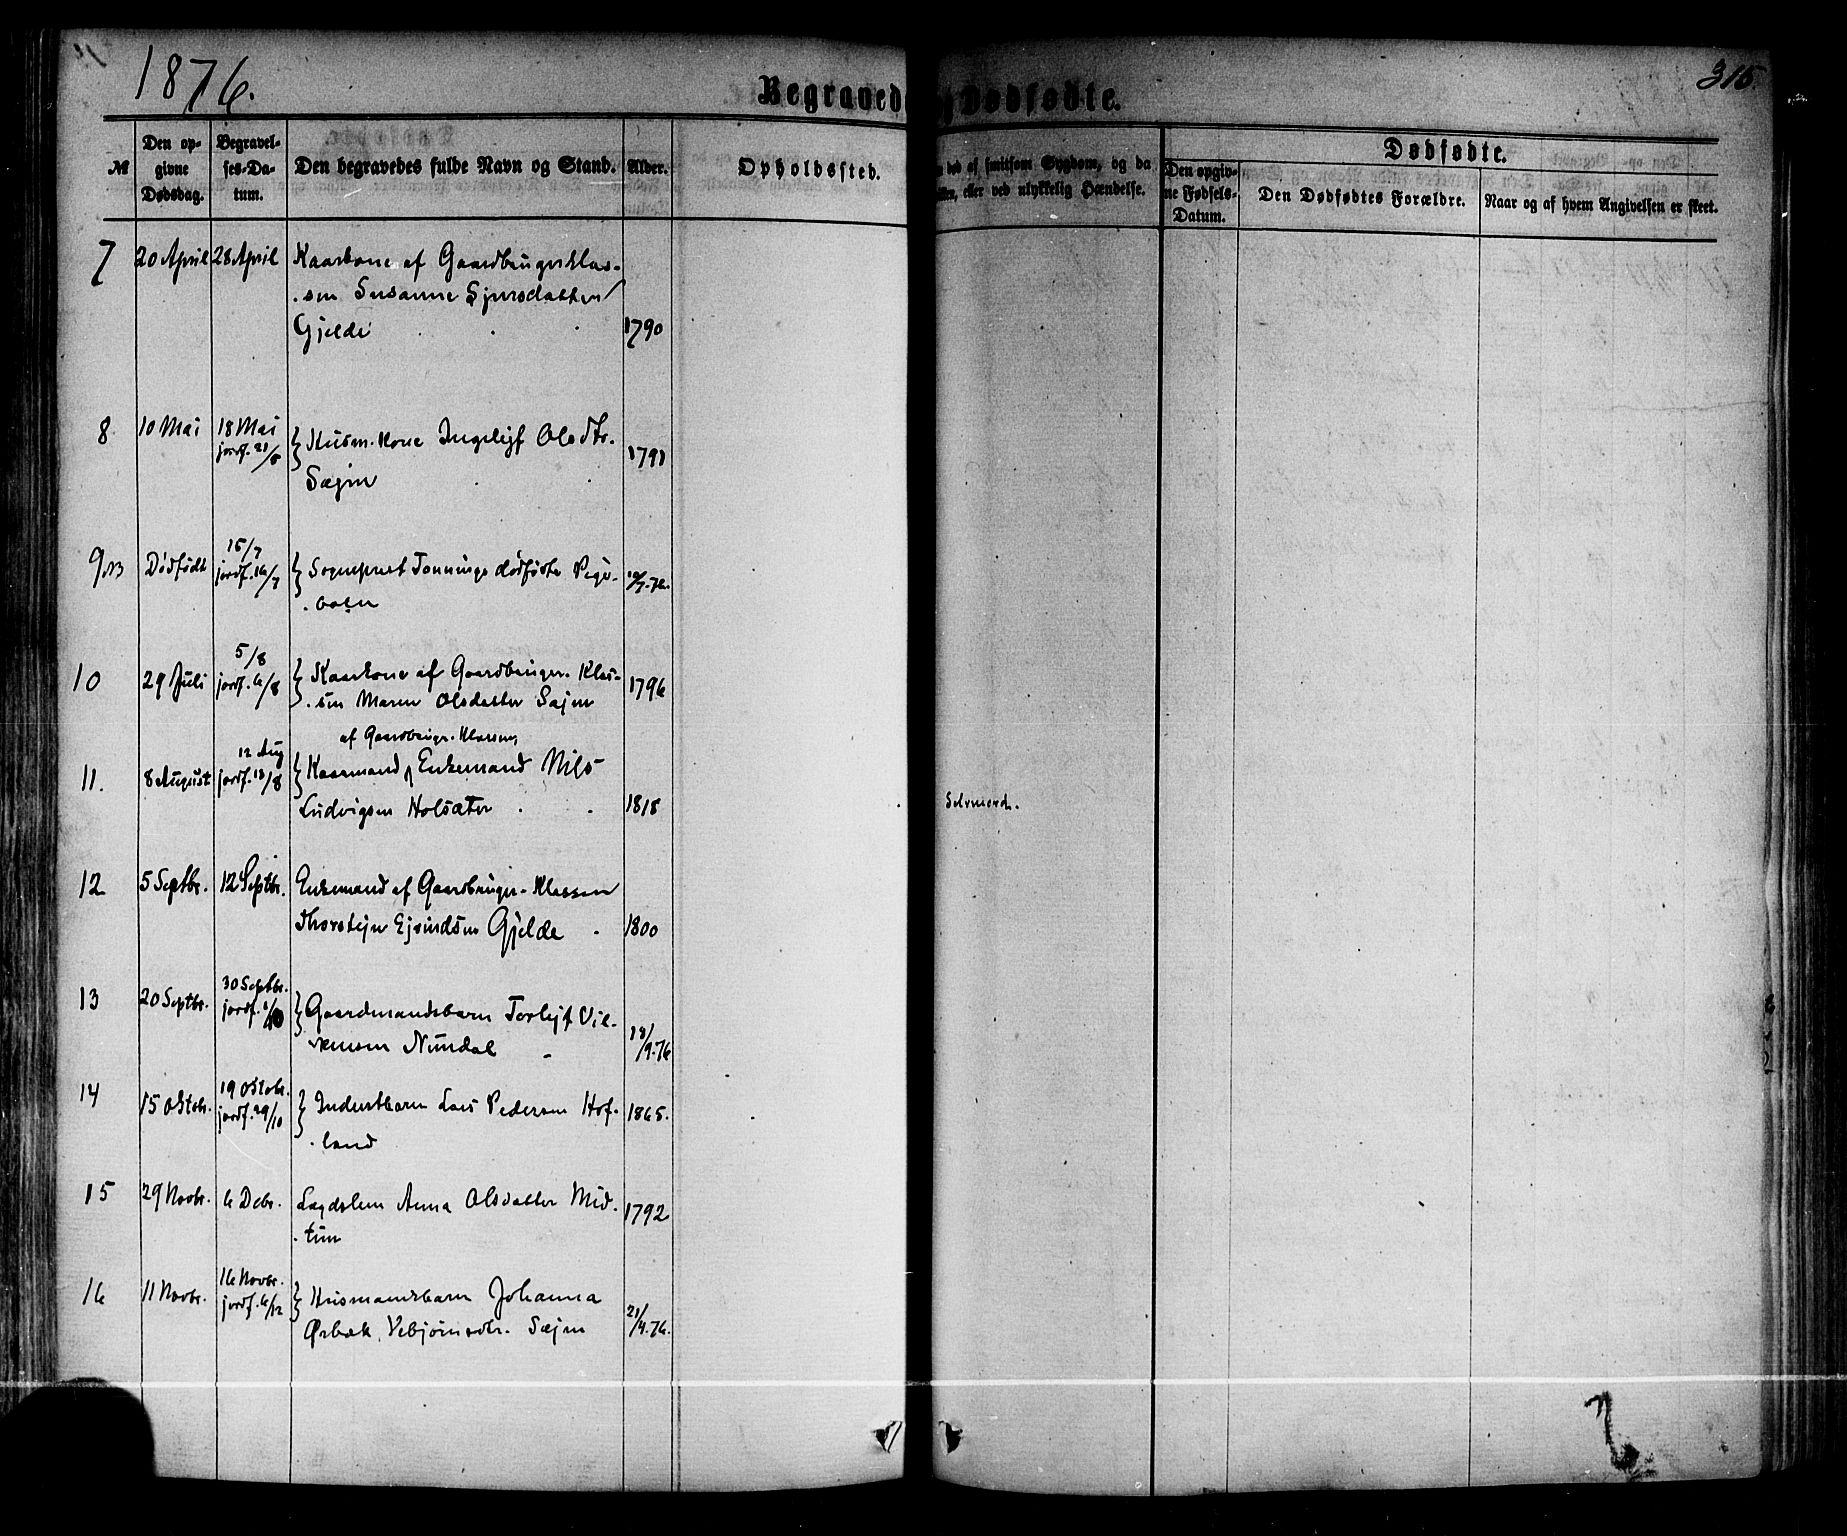 1876.
Begravede
Dødfødte.
315.
№
Den opgivne Dødsdag.
Begravelses-Datum.
Den begravedes fulde Navn og Stand.
Alder.
Opholdssted.
død af smitsom Sygdom, og da
eller ved ulykkelig Hændelse.
Dødfødte.
Den opgivne Fødsels-Datum.
Den Dødfødtes Forældre.
Naar og af hvem Angivelsen er skeet.
7 20 April 28 April Kaarkone af Gaardbrugerklas-
sen Susanne Sjursdatter
Gjelde 1790
8 10 Mai 18 Mai
jordf. 21/5 Husm. Kone Ingelejf Olsdtr.
Sægin 1791
9 Dødfødt 15/7
jordf. 16/7 Sogneprest Tonnings dødfødte Pige-
barn 10/7.76.
10 29 Juli 5/8
jordf. 6/8 Kaarkone af Gaardbruger-Klas-
sen Maren Olsdatter Sæjm 1796
af Gaardbruger-Klassen,
11. 8 August 12 Aug
jordf. 13/8 Kaarmand, Enkemand Nils
Ludvigsen Holsæter 1818 Selvmord.
12 5 Septbr. 12 Septbr. Enkemand af Gaardbruger-Klassen
Thorstejn Ejvindsen Gjelde 1800
13 20 Septbr. 30 Septbr.
jordf. 1/10 Gaardmandsbarn Torlejf Vil-
Nundal 18/9.76
14 15 Oktobr. 19 Oktobr.
jordf. 29/10 Inderstbarn Lars Pedersen Hof-
land 1865.
15 29 Novbr. 6 Dcbr. Lægdslem Anna Olsdatter Mid-
tun 1792
16 11 Novbr. 16 Novbr.
jordf. 6/12 Husmandsbarn Johanna
Ørbæk Vebjørnsdtr. Sæjm 21/4.76.